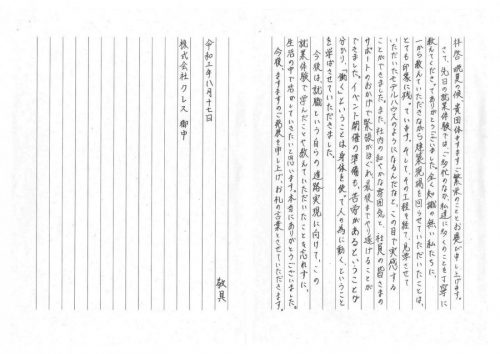 拝啓 晩夏の候、貴団体ますますご繁栄のこととお慶び申し上げます。
さて、先日の就業体験では、お忙しいなか私達に多くのことを丁寧に
教えてくださってありがとうございました。全く知識の無い私たちに、
一から教えていただきながら建築現場を回らせていただいたことは、
とても印象に残っています。そして、その工程を経て、見学させて
いただいたモデルハウスのようになるんだなと、この目で実感する
ことができました。また、社内の和やかな雰囲気と、社員の皆さまの
サポートのおかげで緊張がほぐれ、最後までやり遂げることが
できました。イベント開催の準備も、苦労があるということが
分かり、「働く」ということは身体を使って人の為に動く、ということ
を学ばさせていただきました。
今後は、就職という自らの進路実現に向けて、この
就業体験で学んだことや教えていただいたことを忘れずに、
生活の中で活かしていきたいと思います。本当にありがとうございました。
今後、ますますのご活躍を申し上げ、お礼の言葉とさせていただきます。
敬具
令和三年八月十七日
株式会社クレス 御中